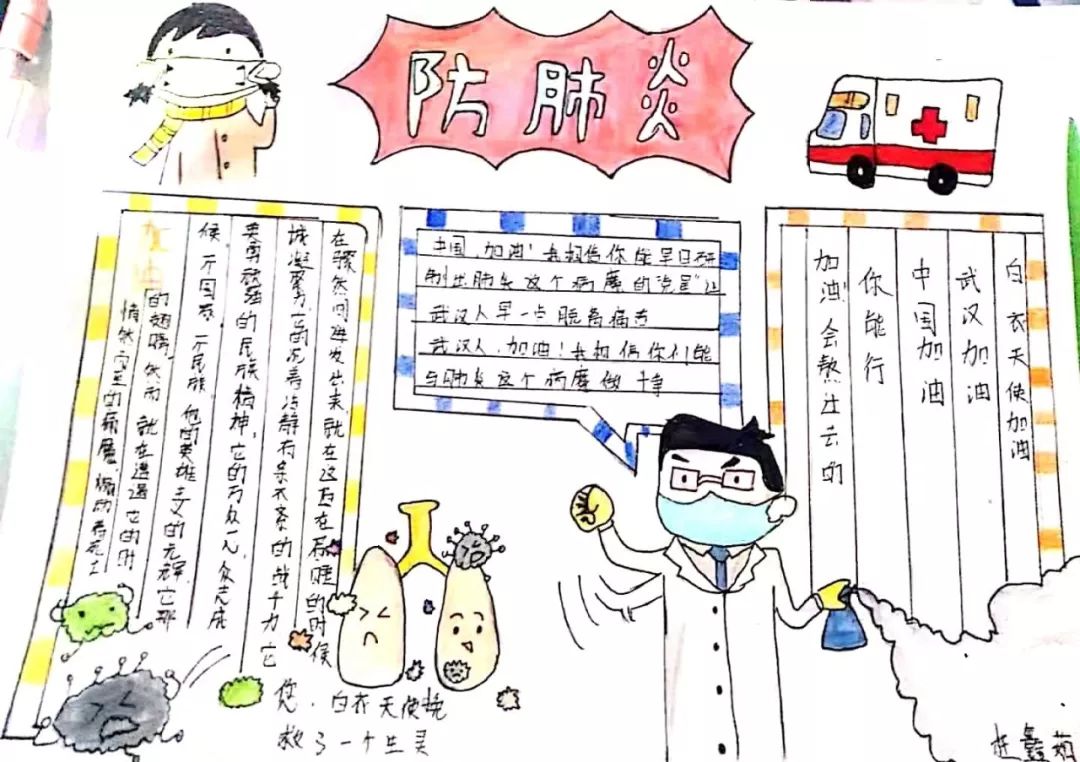 防肺炎
加油
悄然而至的病魔,煽动着死亡
的翅膀,然而,就在遭遇它的时
候,一个国家,一个民族,他的英雄主义的光辉,它那
英勇顽强的民族精神,它的万众一心,众志成
城凝聚力,它的沉着冷静有条不紊的战斗力它
在骤然间迸发出来,就在这正在 的时候
您,白衣天使挽
救了一个生灵
中国,加油!我相信你能早日研
制出肺炎这个病魔的"克星"让
武汉人早一点脱离痛苦
武汉人,加油!我相信你们能
与肺炎这个病魔做斗争
白衣天使加油
武汉加油
中国加油
你能行
加油!会熬过去的